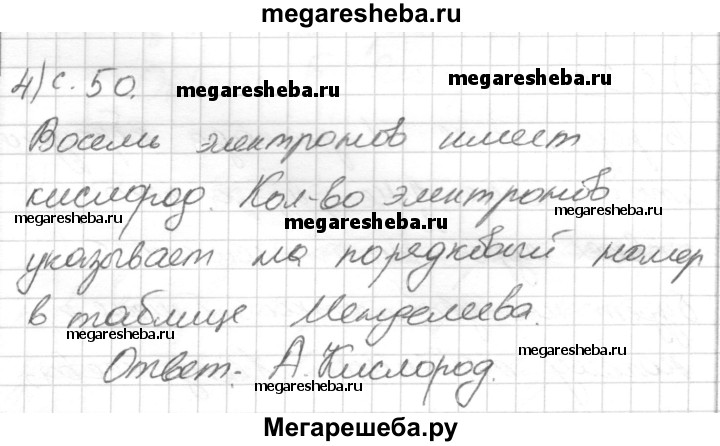 megaresheba.ru
4) с. 50.
megaresheba.ru
megaresheba.ru
Восемь электронов имеет
кислород. Кол-во электронов
megaresheba.ru
megaresheba.ru
megaresheba.ru
указывает на порядковый номер
в таблице Менделеева.
Ответ: А. Кислород.
megaresheba.ru
megaresheba.ru
Мегарешеба.ру